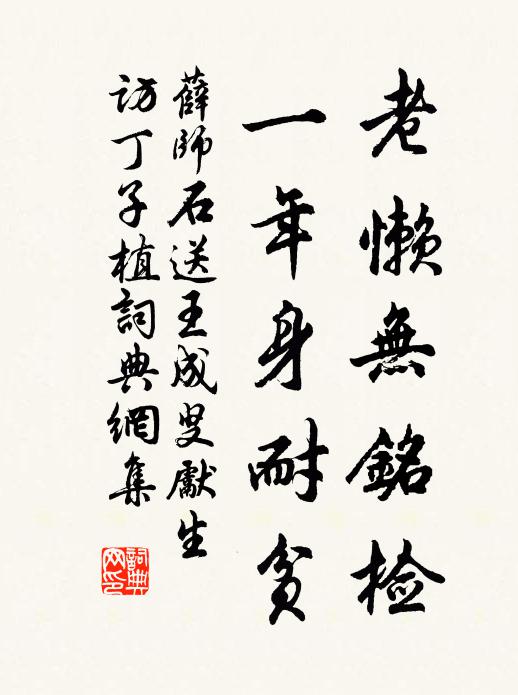 老懒無銘检
一年身耐貧
薛師石送王成叟獻生
訪丁子植詞典網集
詞典网印